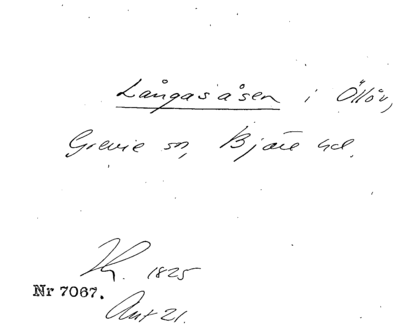 Långasåsen i Öllöv,
Grevie sn, Bjäre hd.
1825
Nr 7067.
Akt 21.